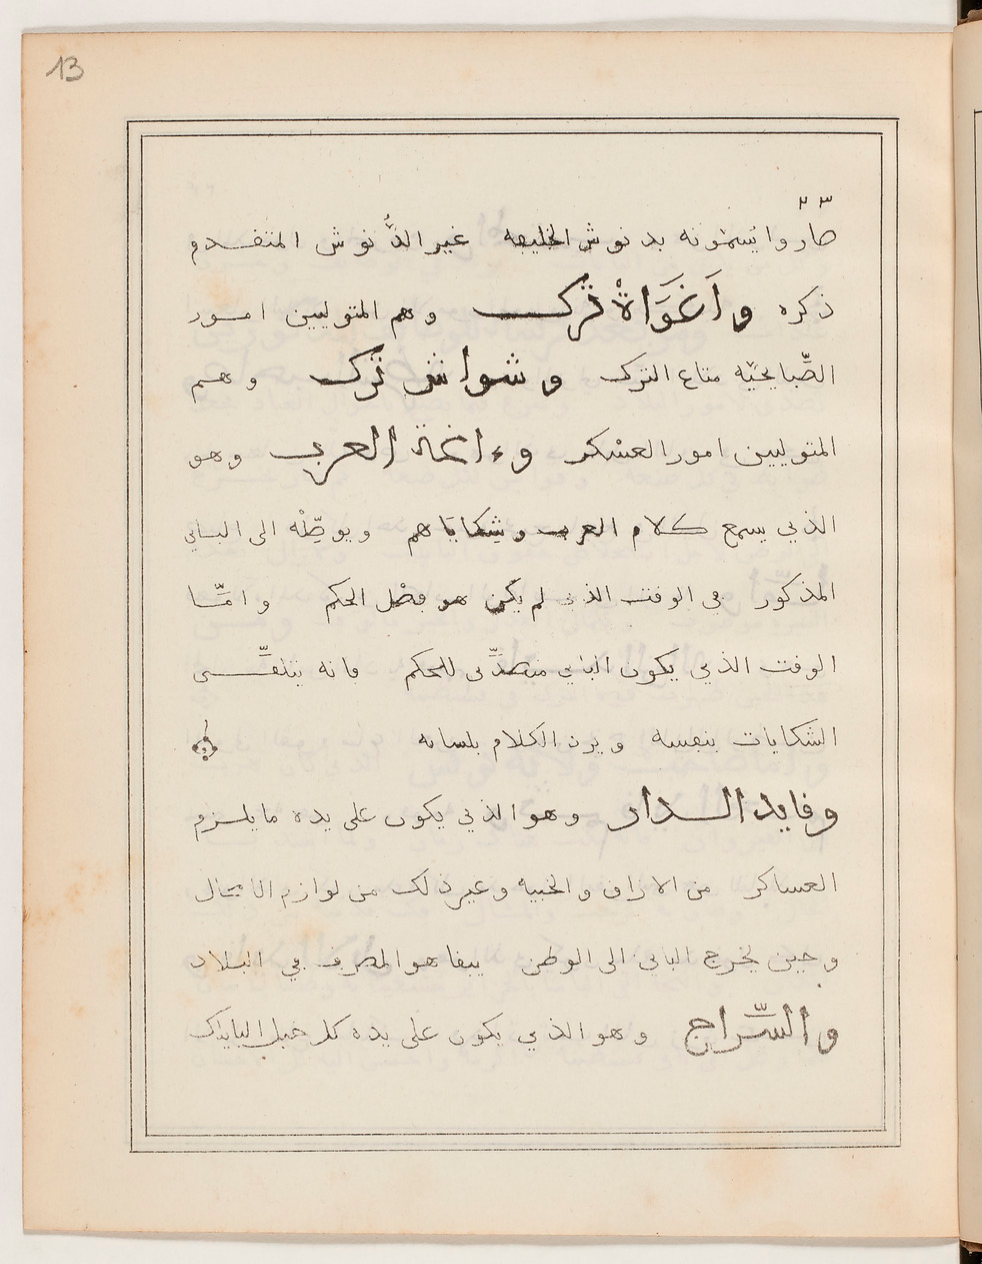 13
٢٣
صاروا يسمونه بدنوش الخليفه غير الدنوش المتقدم
ذكره وَاغَوَاةْ تُرك وهم المتوليين امور
الصّبايحيّه متاع الترك و شواش تُرك وهم
المتوليين امور العسْكر وءاغة العرب وهو
الذي يسمع كلام العرب وشِكاياهم ويوصِّلْه الى الباي
المذكور في الوقت الذي لم يكن هو فصْل الحكم وامّا
الوقت الذي يكون الباي متصدّى للحكم فانه يتلقّى
الشكايات بنفسه ويرد الكلام بلسانه
وقايد الدار وهو الذي يكون على يده ما يلزم
العساكر من الارزاق والخبيه وغير ذلك من لوازم الامحال
وحين يخرج الباى الى الوطن يبقا هو المصرف في البلاد
والسّراج وهو الذي يكون على يده كل خيل البايلك